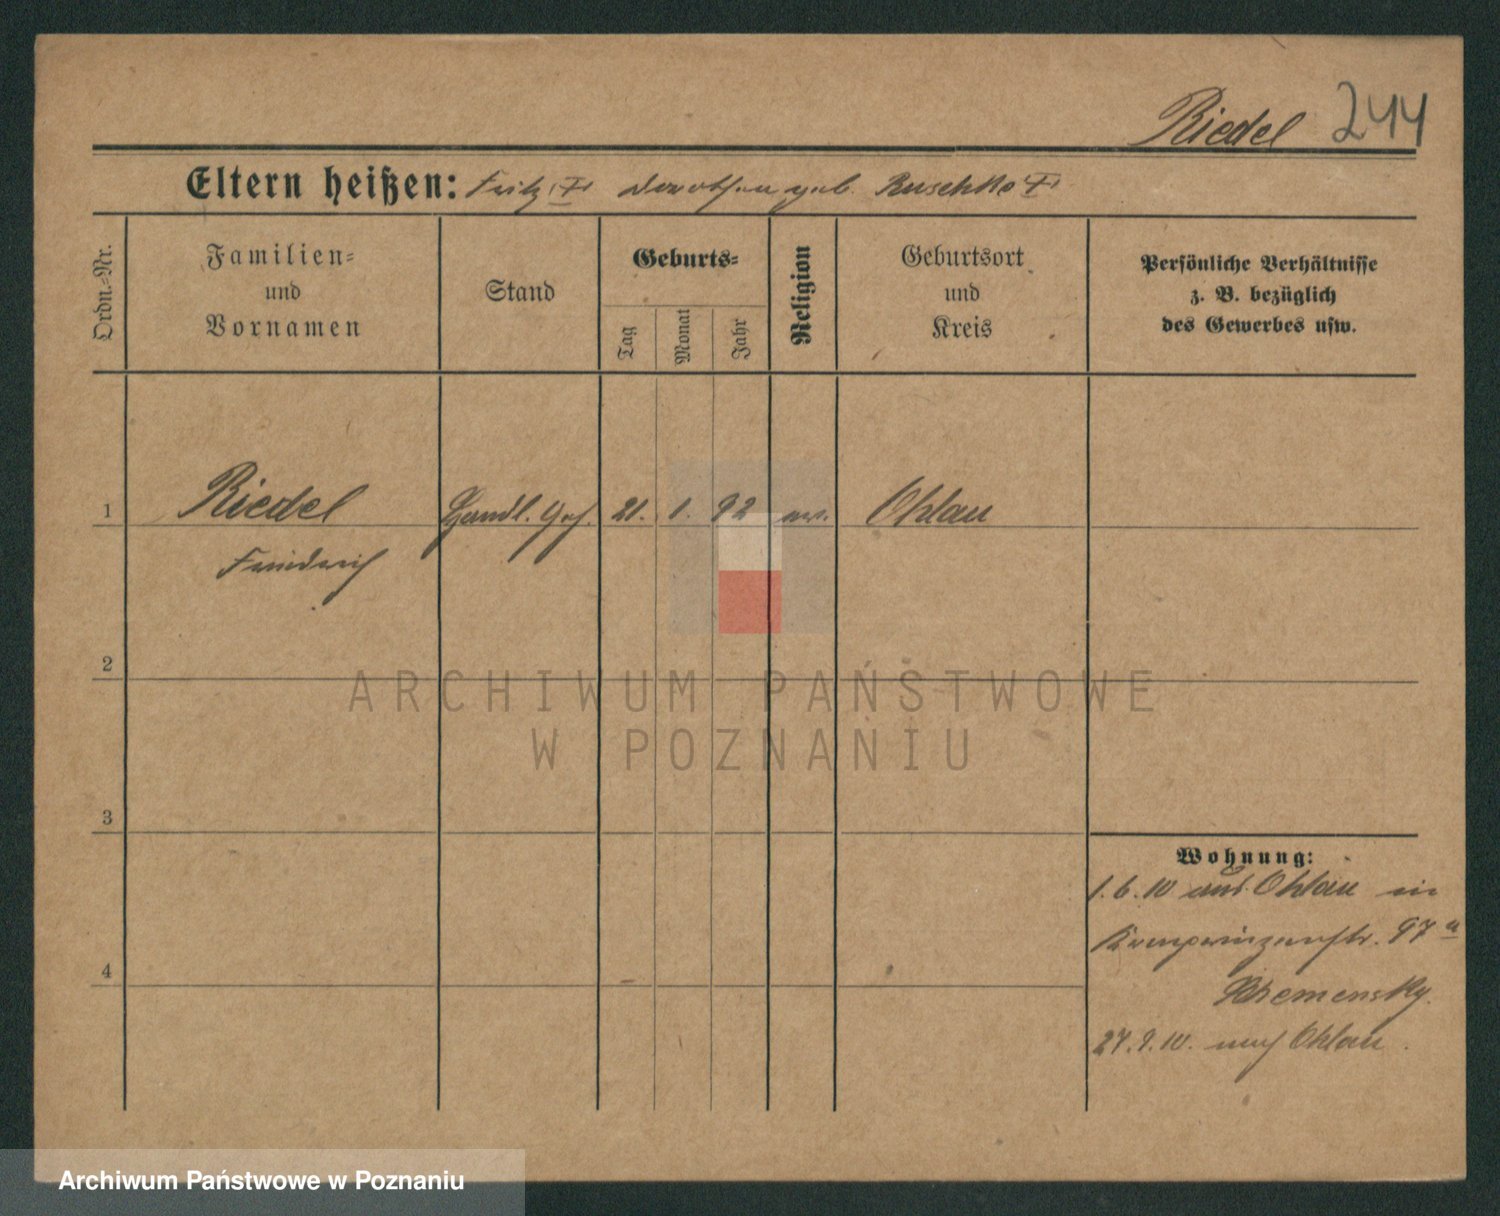 Riedel 244
Eltern heißen: Fritz, Dorothea geb. Ruschke
Ordn.=Nr.
Familien=
und
Vornamen
Stand
Geburts=
Tag
Monat
Jahr
Religion
Geburtsort
und
Kreis
Persönliche Verhältnisse
z. B. bezüglich
des Gewerbes usw.
1 Riedel Handl. Geh. 21. 1. 92 ev. Ohlau
Friedrich
2
3
4
Wohnung:
1.6.10 aus Ohlau in
Kronprinzenstr. 97a
27.9.10. nach Ohlau.
ARCHIWUM PAŃSTWOWE
W POZNANIU
Archiwum Państwowe w Poznaniu